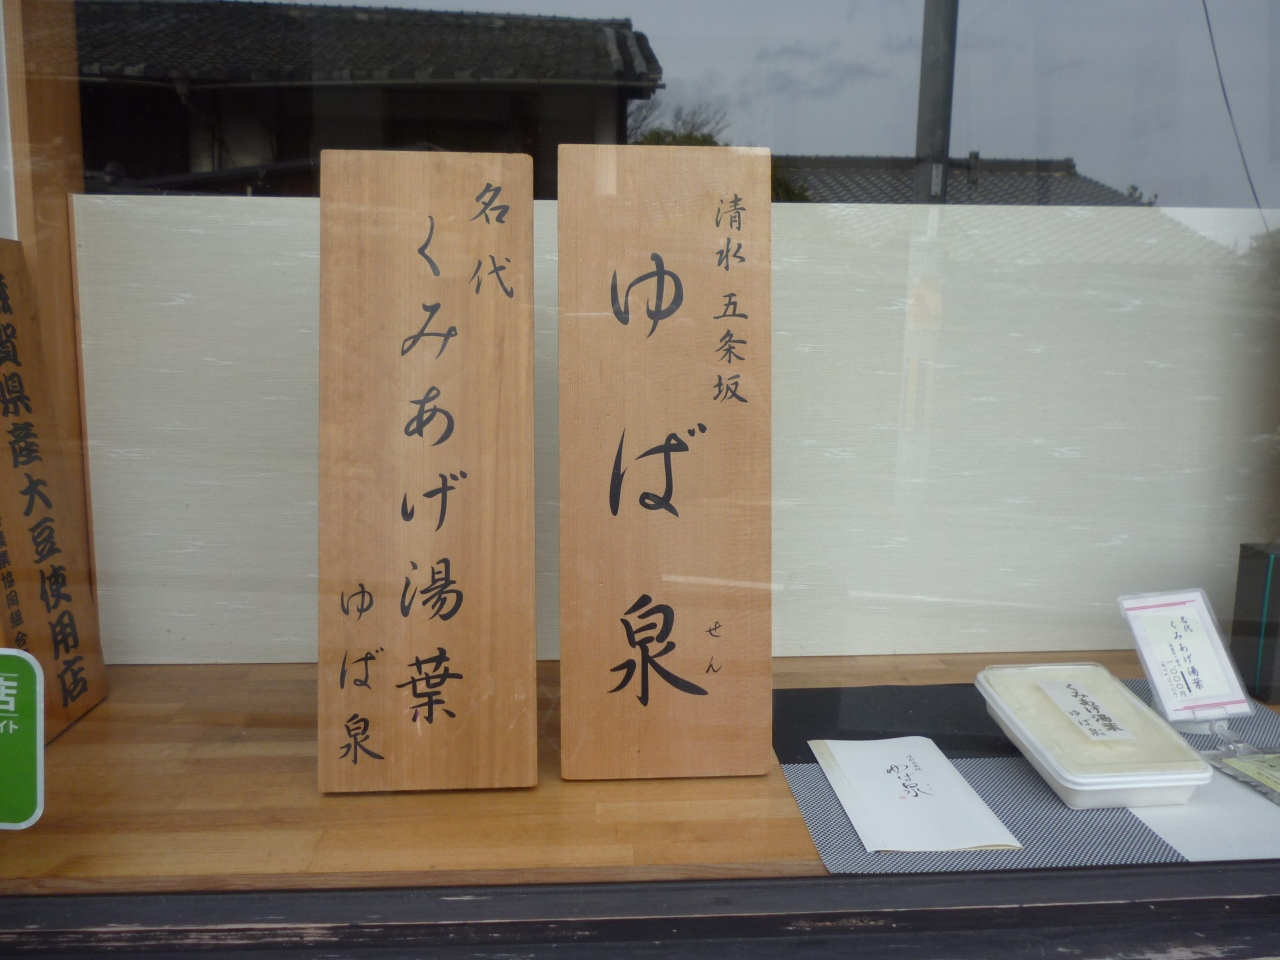 清水 五条坂
ゆば泉
せん
名代
くみあげ湯葉
ゆば泉
滋賀県産大豆使用店
名代
くみあげ湯葉
くみあげ湯葉
ゆば泉
ゆば泉